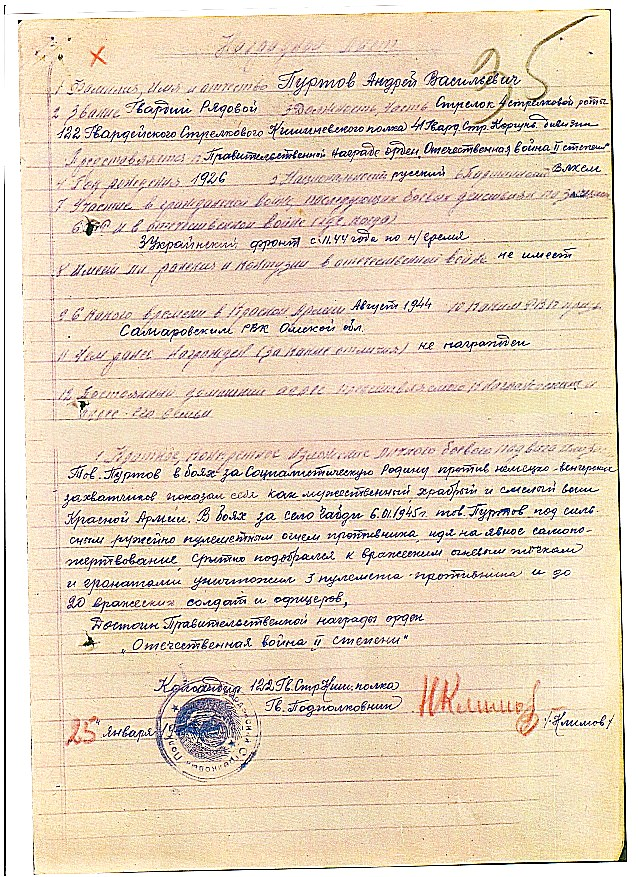 Наградной лист
35
1 Фамилия, Имя и отчество Пуртов Андрей Васильевич
2 Звание Гвардии Рядовой 3 Должность, часть Стрелок 4 стрелковой роты
122 Гвардейского Стрелкового Кишиневского полка 41 Гвард. Стр. Корсунв. дивизии
Представляется к Правительственной Награде орден „Отечественная война II степени"
4 Год рождения 1926 5 Национальность русский 6 Партийность ВЛКСМ
7 Участие в гражданской войне, последующих боевых действиях по защите
СССР и в отечественной войне (где, когда)
3 Украинский фронт с 11.44 года по н/время
8 Имеет ли ранения и контузии в отечественной войне не имеет
9 С какого времени в Красной Армии Август 1944 10 Каким РВК призван
Самаровским РВК Омской обл.
11 Чем ранее награжден (за какие отличия) не награжден
12 Постоянный домашний адрес представляемого к награждению и
адрес его семьи
1. Краткое конкретное изложение личного боевого подвига
Тов. Пуртов в боях за Социалистическую Родину против немецко-венгерских
захватчиков показал себя как мужественный храбрый и смелый воин
Красной Армии. В боях за село Чабди 6.01.1945г. тов. Пуртов под силь-
ным ружейно пулеметным огнем противника идя на явное самопо-
жертвование, скрытно подобрался к вражеским огневым точкам
и гранатами уничтожил 3 пулемета противника и до
20 вражеских солдат и офицеров,
Достоин Правительственной награды орден
„Отечественная война II степени"
Командир 122 Гв. Стр. Киш. полка
Гв. Подполковник Климов /Климов/
25 января 19